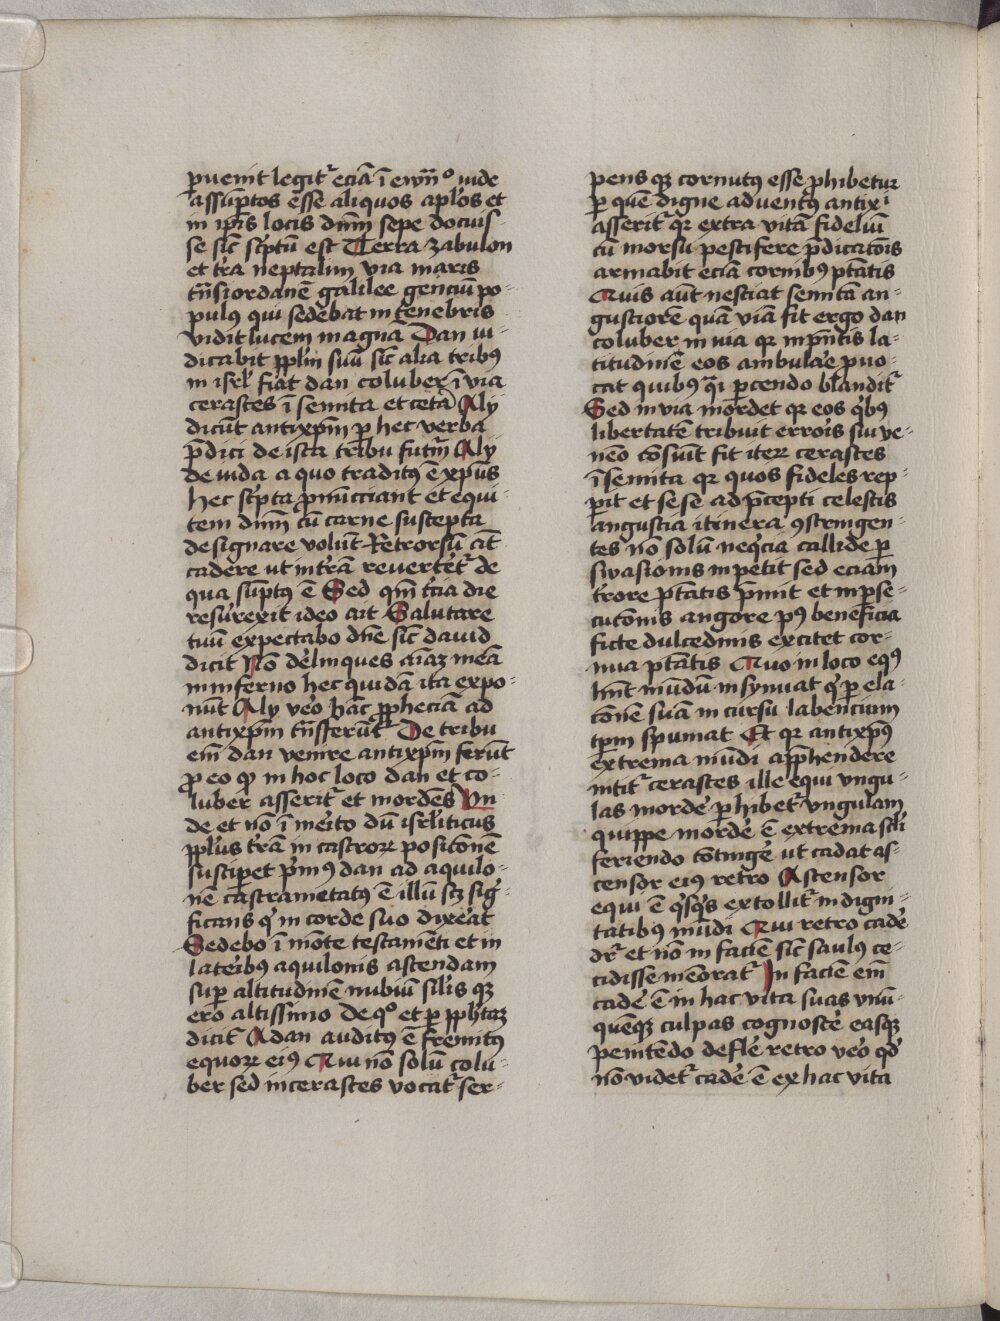 ꝑuenit legit᷑ eciā ī ewn̄º inde
assūptos esse aliquos apl̓os et
in ip̄is locis dn̄m sepe docuis-
se sic̄ sc̓ptū est Terra zabulon
et t̓ra neptalim via maris
tn̄siordanē galilee genciū po-
pulꝰ qui sedebat in tenebris
vidit lucem magnā Dan iu-
dicabit ppl̓m suū sic̄ alia tribꝰ
in isrl̓ fiat dan coluber ī via
cerastes ī semita et cetā Alij
dicūt antixp̄m ꝑ hec verba
p̄dici de ista tribu futm̄ Alij
de iuda a quo traditꝰ ē xp̄us
hec sc̓pta ꝓnūcciant et equi-
tem dn̄m cū carne suscepta
designare volūt Retrorsū aūt
cadere ut in t̓rā reuertet᷑ de
qua sūptꝰ ē Sed qm̄ t̓cia die
resurexit ideo ait Salutare
tuū expectabo dn̄e sic̄ dauid
dicit Nō delinques aīaꝫ meā
in inferno hec quidā ita expo-
nūt Alij veo hāc ꝓpheciā ad
antixp̄m tn̄sferūt De tribu
em̄ dan venire antixp̄m ferūt
ꝓ eo ꝙ in hoc loco dan et co-
luber asserit᷑ et mordēs Vn
de et nō ī mēito dū isrl̓iticus
ppl̓us t̓rā in castroꝝ posicōnē
susciꝑet p̓mꝰ dan ad aquilo-
nē castrametatꝰ ē illū scꝫ sig-
ficans ꝙ in corde suo dixēat
Sedebo ī mōte testamēti et in
lateribꝰ aquilonis ascendam
suꝑ altitudinē nubiū sil̓is qꝫ
ero altissimo De qº et ꝑ ꝓphaꝫ
dicit᷑ A dan auditꝰ ē fremitꝰ
equoꝝ eiꝰ Qui nō solū colu-
ber sed in cerastes vocat᷑ ser-
pens qꝫ cornutꝰ esse ꝑhibetur
ꝑ quē digne aduentꝰ antixⁱ
asserit᷑ qꝛ extra vitā fideliū
cū morsu pestifere p̄dicatōis
armabit eciā cornibꝰ ptātis
Quis aūt nesciat semitā an-
gustiorē quā viā fit ergo dan
coluber in via qꝛ in p̄ntis la-
titudinē eos ambulāe ꝓuo-
cat quibꝰ qͣi ꝑcendo blandit᷑
Sed in via mordet qꝛ eos qͥbꝰ
libertatē tribuit errois sui ve-
nēo cōsūit fit iteꝝ cerastes
ī semita qꝛ quos fideles rep-
ꝑit et sese ad p̄cepti celestis
angustia itinera ꝯstringen-
tes nō solū neqͥcia callide ꝑ
swasionis inpetit sed eciam
t̓rore ptātis p̓mit et in ꝑse-
cutōnis angore pꝰ beneficia
ficte dulcedinis excitet cor-
nua ptātis Quo in loco eqꝰ
hūt mūdū insynuat qͥ ꝑ ela-
cōnē suā in cursu labencium
tpm̄ spumat Et qꝛ antixp̄ꝰ
extrema mūdi app̄hendere
nitit᷑ cerastes ille equi vngu-
las mordē ꝑhibet᷑ vngulam
quippe mordē ē extrema scl̓i
feriendo cōtingē ut cadat as-
censor eiꝰ retro Ascensor
equi ē qͥsqͥs extollit᷑ in digni-
tatibꝰ mūdi Qui retro cadē
dr̄ et nō in faciē sic̄ saulꝰ ce-
cidisse mēorat᷑ In faciē em̄
cadē ē in hac vita suas vnū-
quēqꝫ culpas cognoscē easqꝫ
penitēdo deflē retro veo qd̓
nō videt᷑ cadē ē ex hac vita